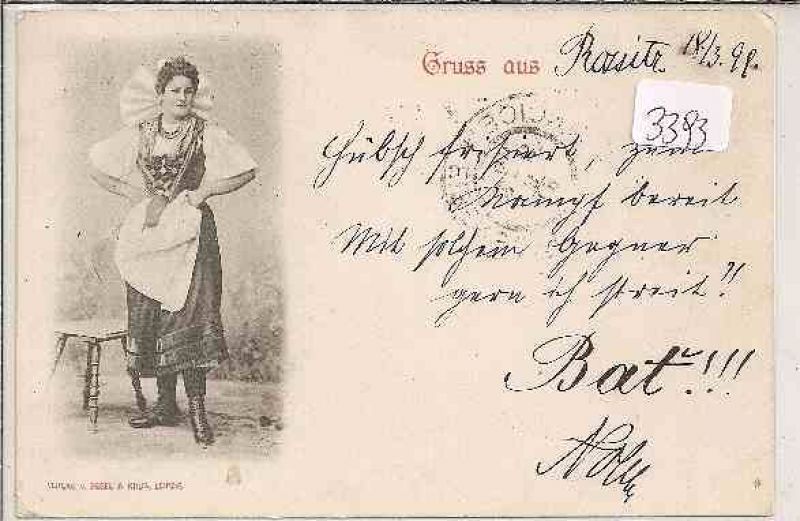 Gruss aus Rositz 18/3.99.
3393
Hübsch frisiert, zum
Kampf bereit
Mit solchem Gegner
gern ich streit"!
Bat"!!!
VERLAG V. LEIPZIG